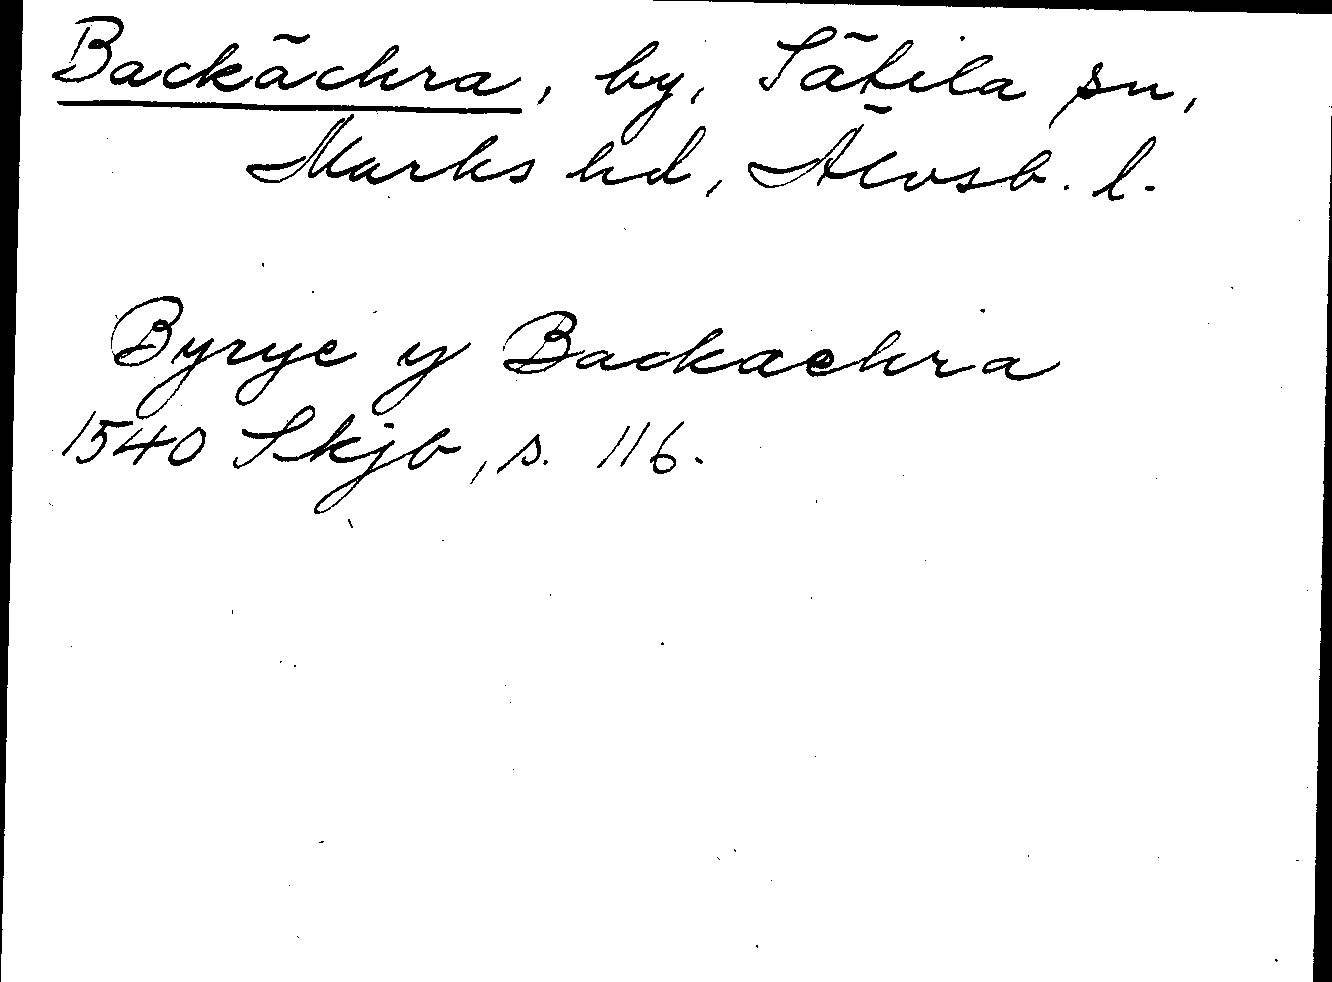 Backächra, by, Sätila sn,
Marks hd, Älvsb. l.
Byrye y Backaechra
1540 Skjb, s. 116.